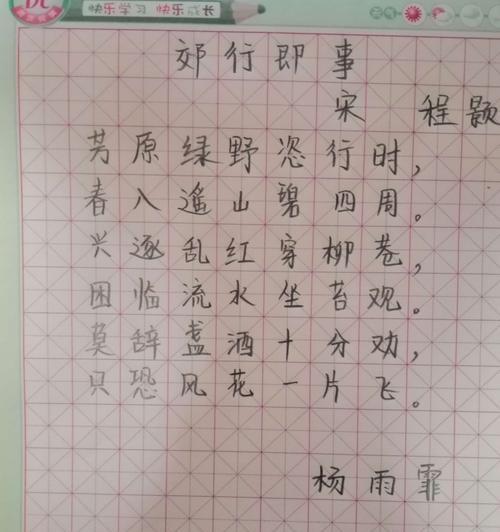 快乐学习 快乐成长
郊行即事
宋 程颢
芳原绿野恣行时，
春入遥山碧四周。
兴逐乱红穿柳巷，
困临流水坐苔观。
莫辞盏酒十分劝，
只恐风花一片飞。
杨雨霏